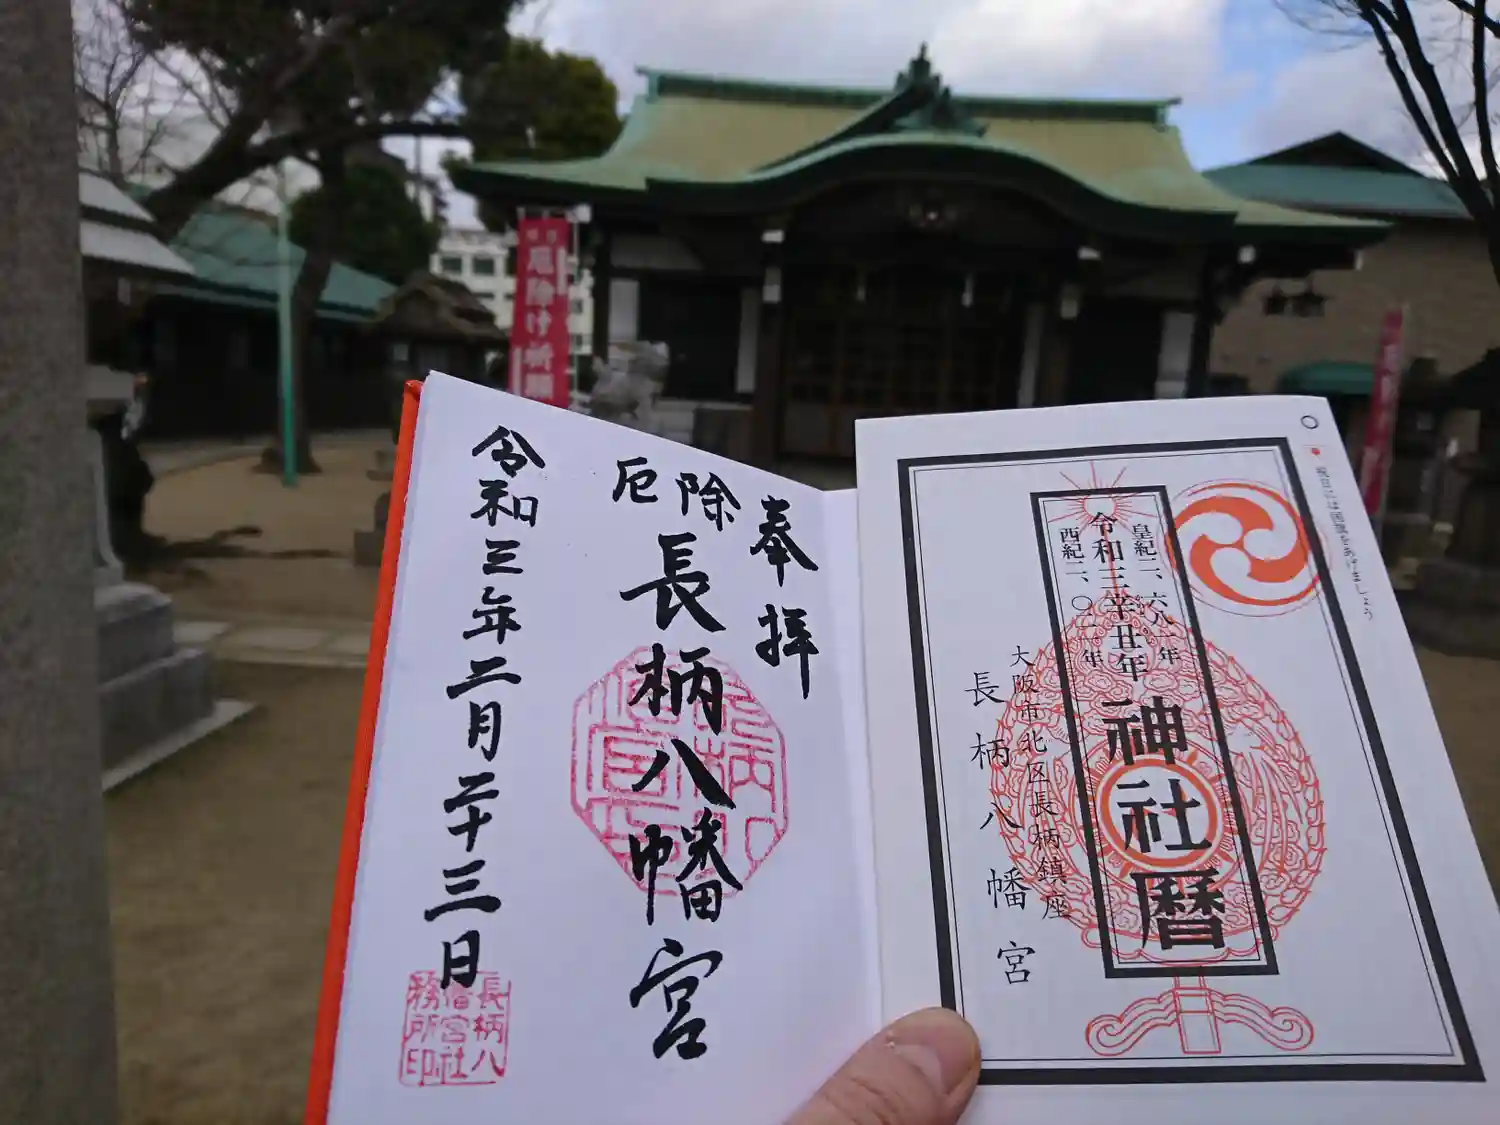 奉拝
厄除
長柄八幡宮
令和三年二月二十三日
長柄八
幡宮社
務所印
厄除け祈願
祝日には国旗をあげましょう
皇紀二、六八一年
令和三辛丑年
西紀二、〇二一年
神社暦
大阪市北区長柄鎮座
長柄八幡宮